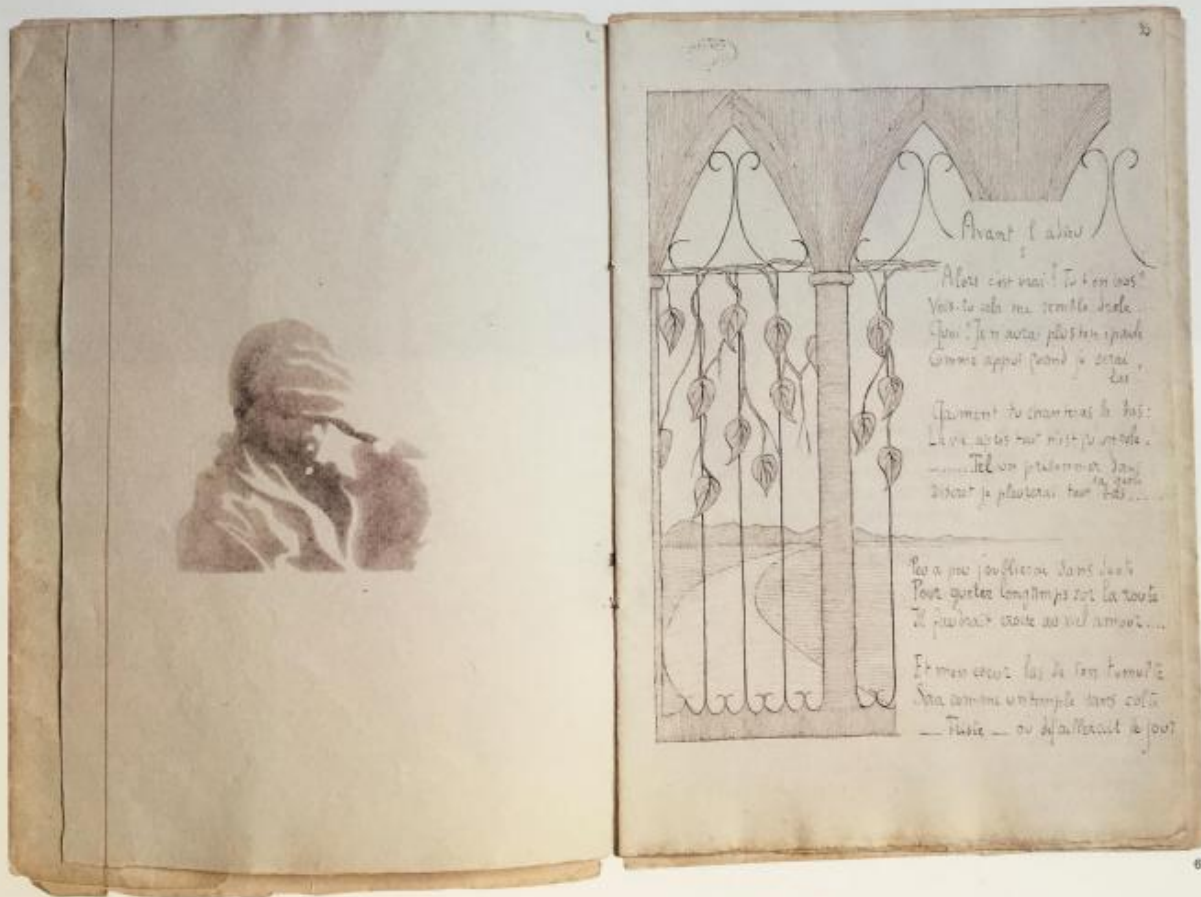 Avant l'adieu
Alors c'est vrai ? Tu t'en vas ?
Vois-tu cela me semble drôle..
Quoi ? Je n'aurai plus ton épaule
Comme appui quand je serai
las
Gaîment tu chanteras là-bas :
La vie après tout n'est qu'un rôle.
........Tel un prisonnier dans
sa geôle
Discret je pleurerai tout bas.....
Peu à peu j'oublierai sans doute
Pour guetter longtemps sur la route
Il faudrait croire au vieil amour....
Et mon cœur las de son tumulte
Sera comme un temple sans culte
— Triste — où défaillerait le jour
6